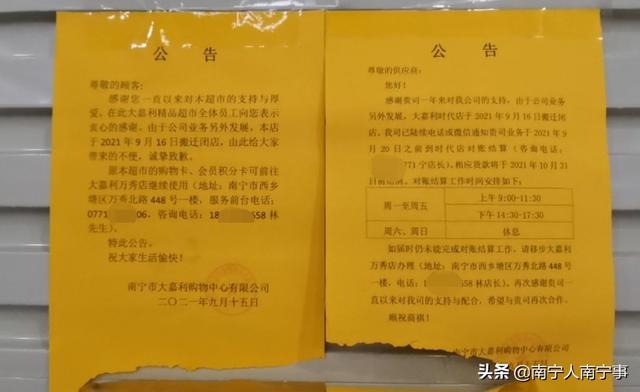 公告
尊敬的顾客:
感谢您一直以来对本超市的支持与厚
爱。在此大嘉利精品超市全体员工向您表示
衷心的感谢。由于公司业务另外发展,本店
于2021年9月16日搬迁闭店,由此给大家
带来的不便,诚挚致歉。
原本超市的购物卡、会员积分卡可前往
大嘉利万秀店继续使用(地址:南宁市西乡
塘区万秀北路448号一楼,服务前台电话:
0771 06,咨询电话:18 658林
先生)。
特此公告。
祝大家生活愉快!
南宁市大嘉利购物中心有限公司
二〇二一年九月十五日
公告
尊敬的供应商:
您好!
感谢贵司一年来对我公司的支持,由于公司业务
另外发展,大嘉利时代店于2021年9月16日搬迁闭
店,我司已陆续电话或微信通知贵司业务于2021年9
月20日之前到时代店对账结算(咨询电话:
771宁店长),相应货款将于2021年10月31
日前结清。对账结算工作时间安排如下:
周一至周五
上午9:00-11:30
下午14:30-17:30
周六、周日
休息
如届时仍未能完成对账结算工作,请移步大嘉利
万秀店办理(地址:南宁市西乡塘区万秀北路448号
一楼,电话:1 58林店长)。再次感谢贵司一
直以来对我司的支持与配合,希望与贵司再次合作。
顺祝商祺!
南宁市大嘉利购物中心有限公司
头条 @南宁人南宁事